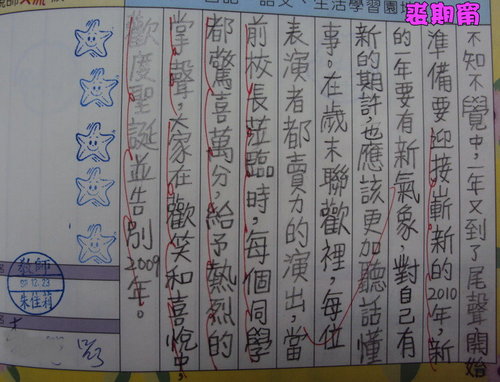 語文、生活學習園
不知不覺中，一年又到了尾聲，開始
準備要迎接嶄新的2010年，新
的年要有新氣象，對自己有
新的期許，也應該更加聽話懂
事。在歲末聯歡裡，每位
表演者都賣力的演出，當
前校長蒞臨時，每個同學
都驚喜萬分，給予熱烈的
掌聲，大家在歡笑和喜悅中，
歡度聖誕並告別2009年。
教師
98.12.23